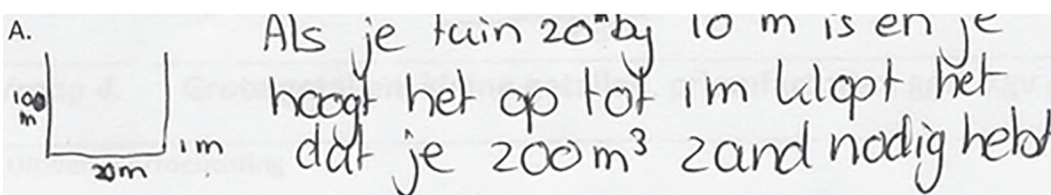 A.
Als je tuin 20 m by 10 m is en je
hoogt het op tot 1 m klopt het
dat je 200 m³ zand nodig hebt
m
1 m
20 m